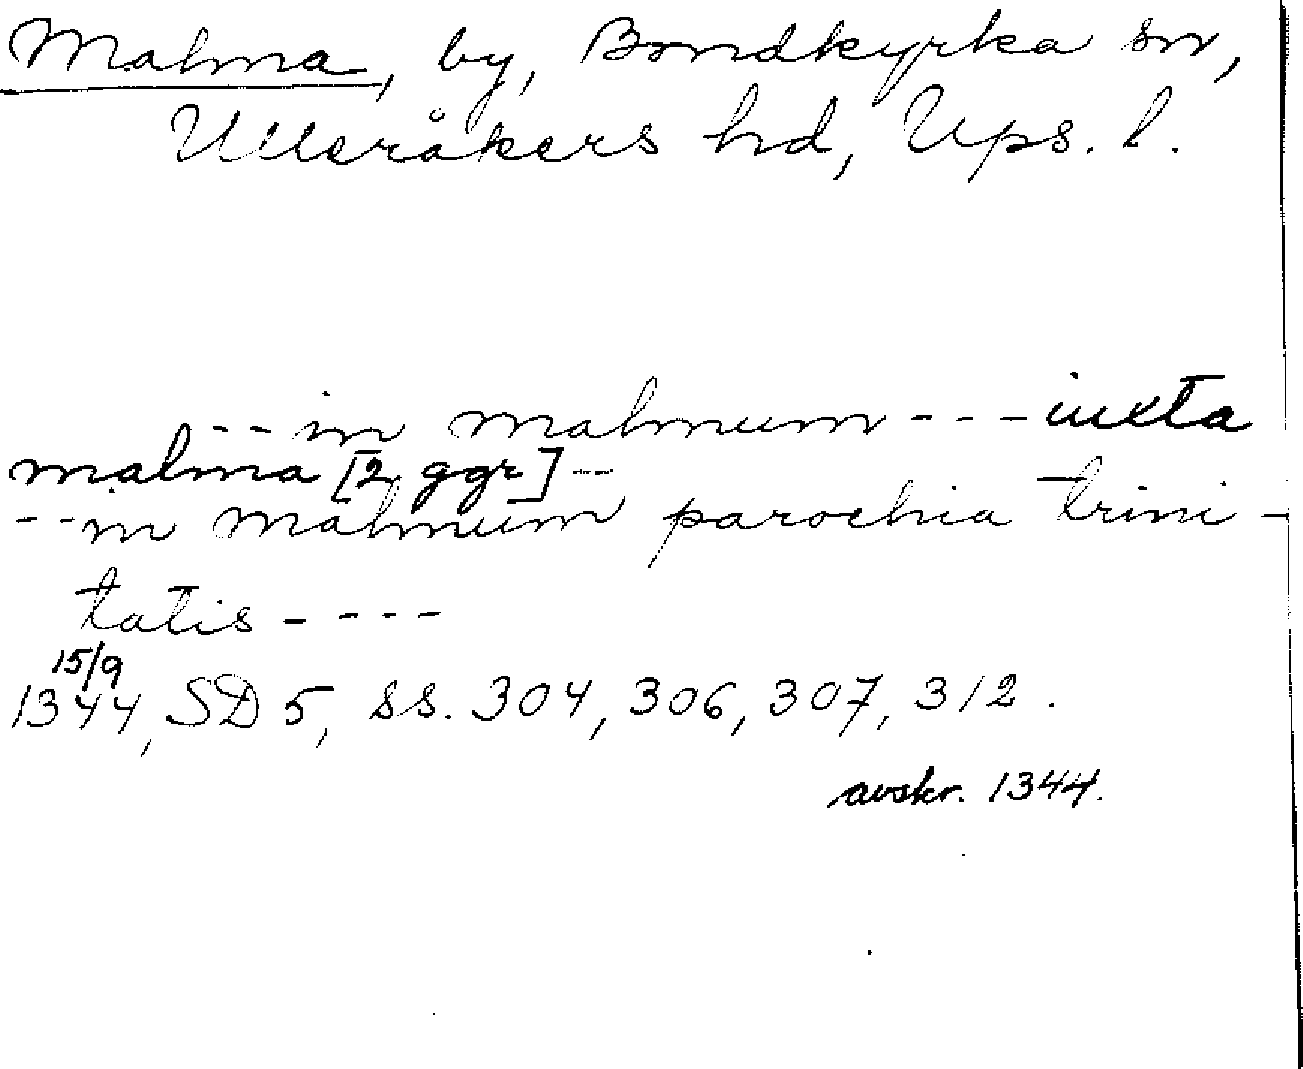 Malma, by, Bondkyrka sn,
Ulleråkers hd, Ups. l.
-- in malmum --- iuxta
malma [2 ggr] --
-- in malmum parochia trini-
tatis ----
15/9
1344, SD 5, ss. 304, 306, 307, 312.
avskr. 1344.